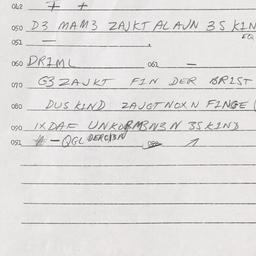 042 + +
050 D3 MAM3 ZAJKT ALAJN 3S KIN
EQ
051 —
060 DRIML 061 —
070 G3 ZAJKT FIN DER BRIST
080 DUS KIND ZAJGT NOXN FINGE
090 IXDAF UNKORM3N3N 3S KIND
091 # - QGL DERCI3N